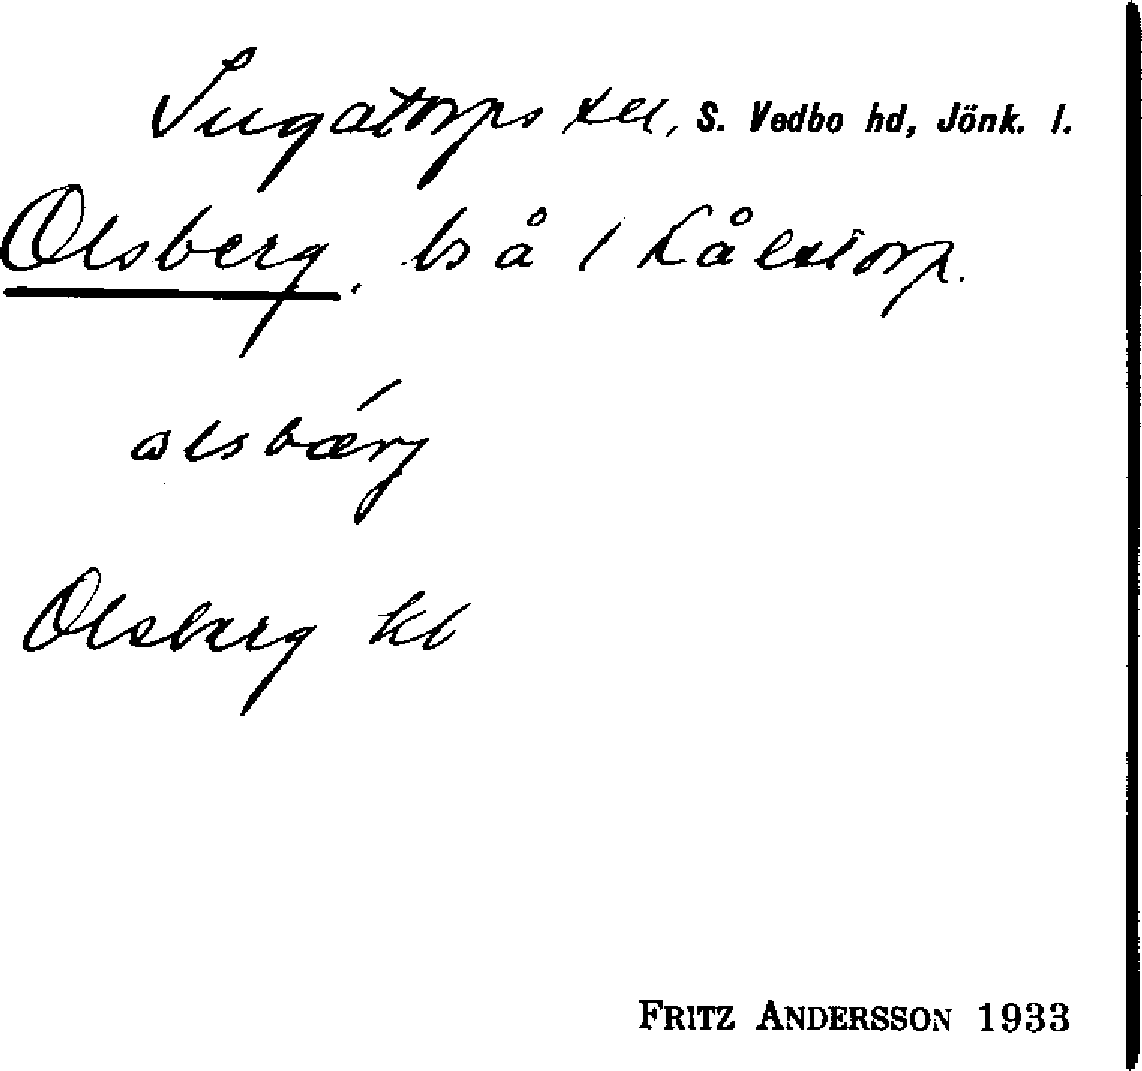 Ingatorps sn, S. Vedbo hd, Jönk. l.
Olsberg. ls å 1 Kålstorp.
alsbǽrj
Olsberg kb
FRITZ ANDERSSON 1933